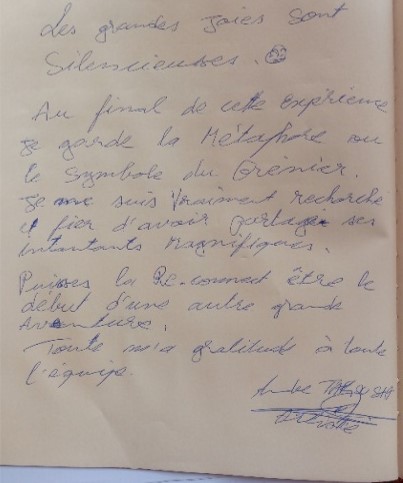 Les grandes joies sont
Silencieuses.
Au final de cette expérience
je garde la Métaphore ou
le Symbole du Grénier.
Je me suis vraiment recherché
et fier d'avoir partagé ses
intantants magnifiques.
Puisses la Re.connect être le
début d'une autre grande
Aventure.
Toute m'a gratitude à toute
l'équipe.
André